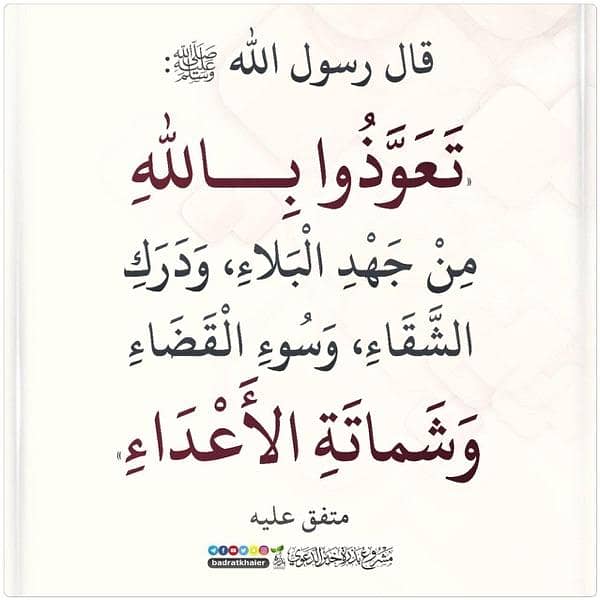 قال رسول الله ﷺ:
«تَعَوَّذُوا بِـاللهِ
مِنْ جَهْدِ الْبَلَاءِ، وَدَرَكِ
الشَّقَاءِ، وَسُوءِ الْقَضَاءِ
وَشَمَاتَةِ الأَعْدَاءِ»
متفق عليه
مشروع بذرة خير الدعوي
بذرة
badratkhaier